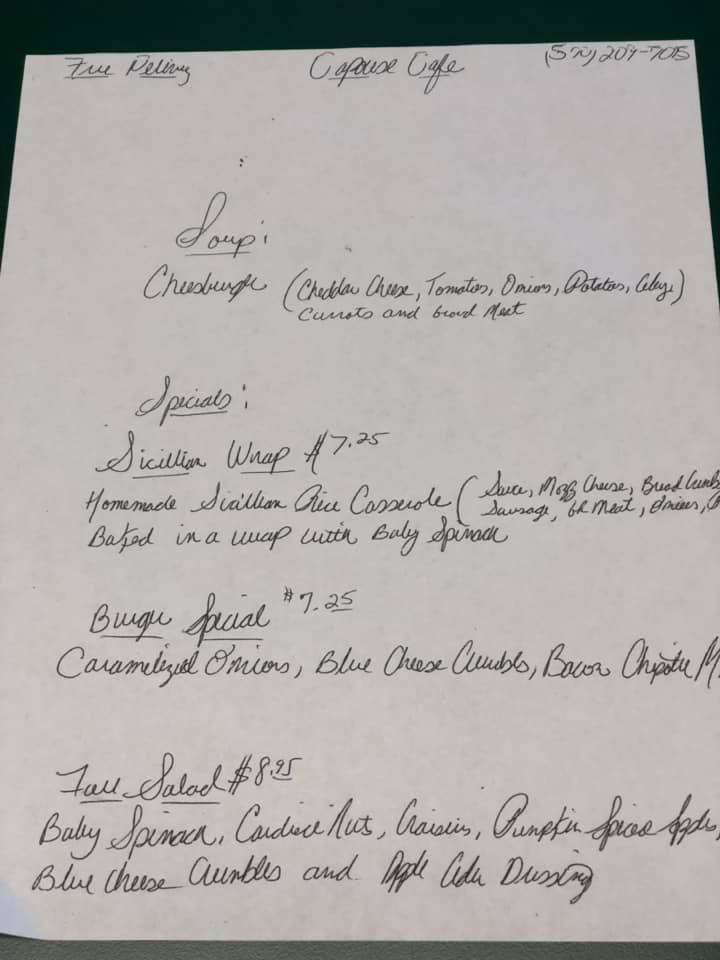 Free Delivery Capouse Cafe (570) 209-7015
Soup:
Cheesburger (Cheddar Cheese, Tomatos, Onions, Potatos, Celery)
Currots and Groud Meat
Specials:
Sicillian Wrap $7.25
Homemade Sicillian Rice Casserole (Sauce, Mozz Cheese, Bread Cumbs
Sausage, Gr Meat, Onions,
Baked in a wrap with Baby Spinach
Burger Special $7.25
Caramelized Onions, Blue Cheese Crumbles, Bacon Chipotle M
Fall Salad $8.95
Baby Spinach, Candied Nuts, Craisins, Pumpkin Spiced Apples,
Blue Cheese Crumbles and Apple Cider Dressing